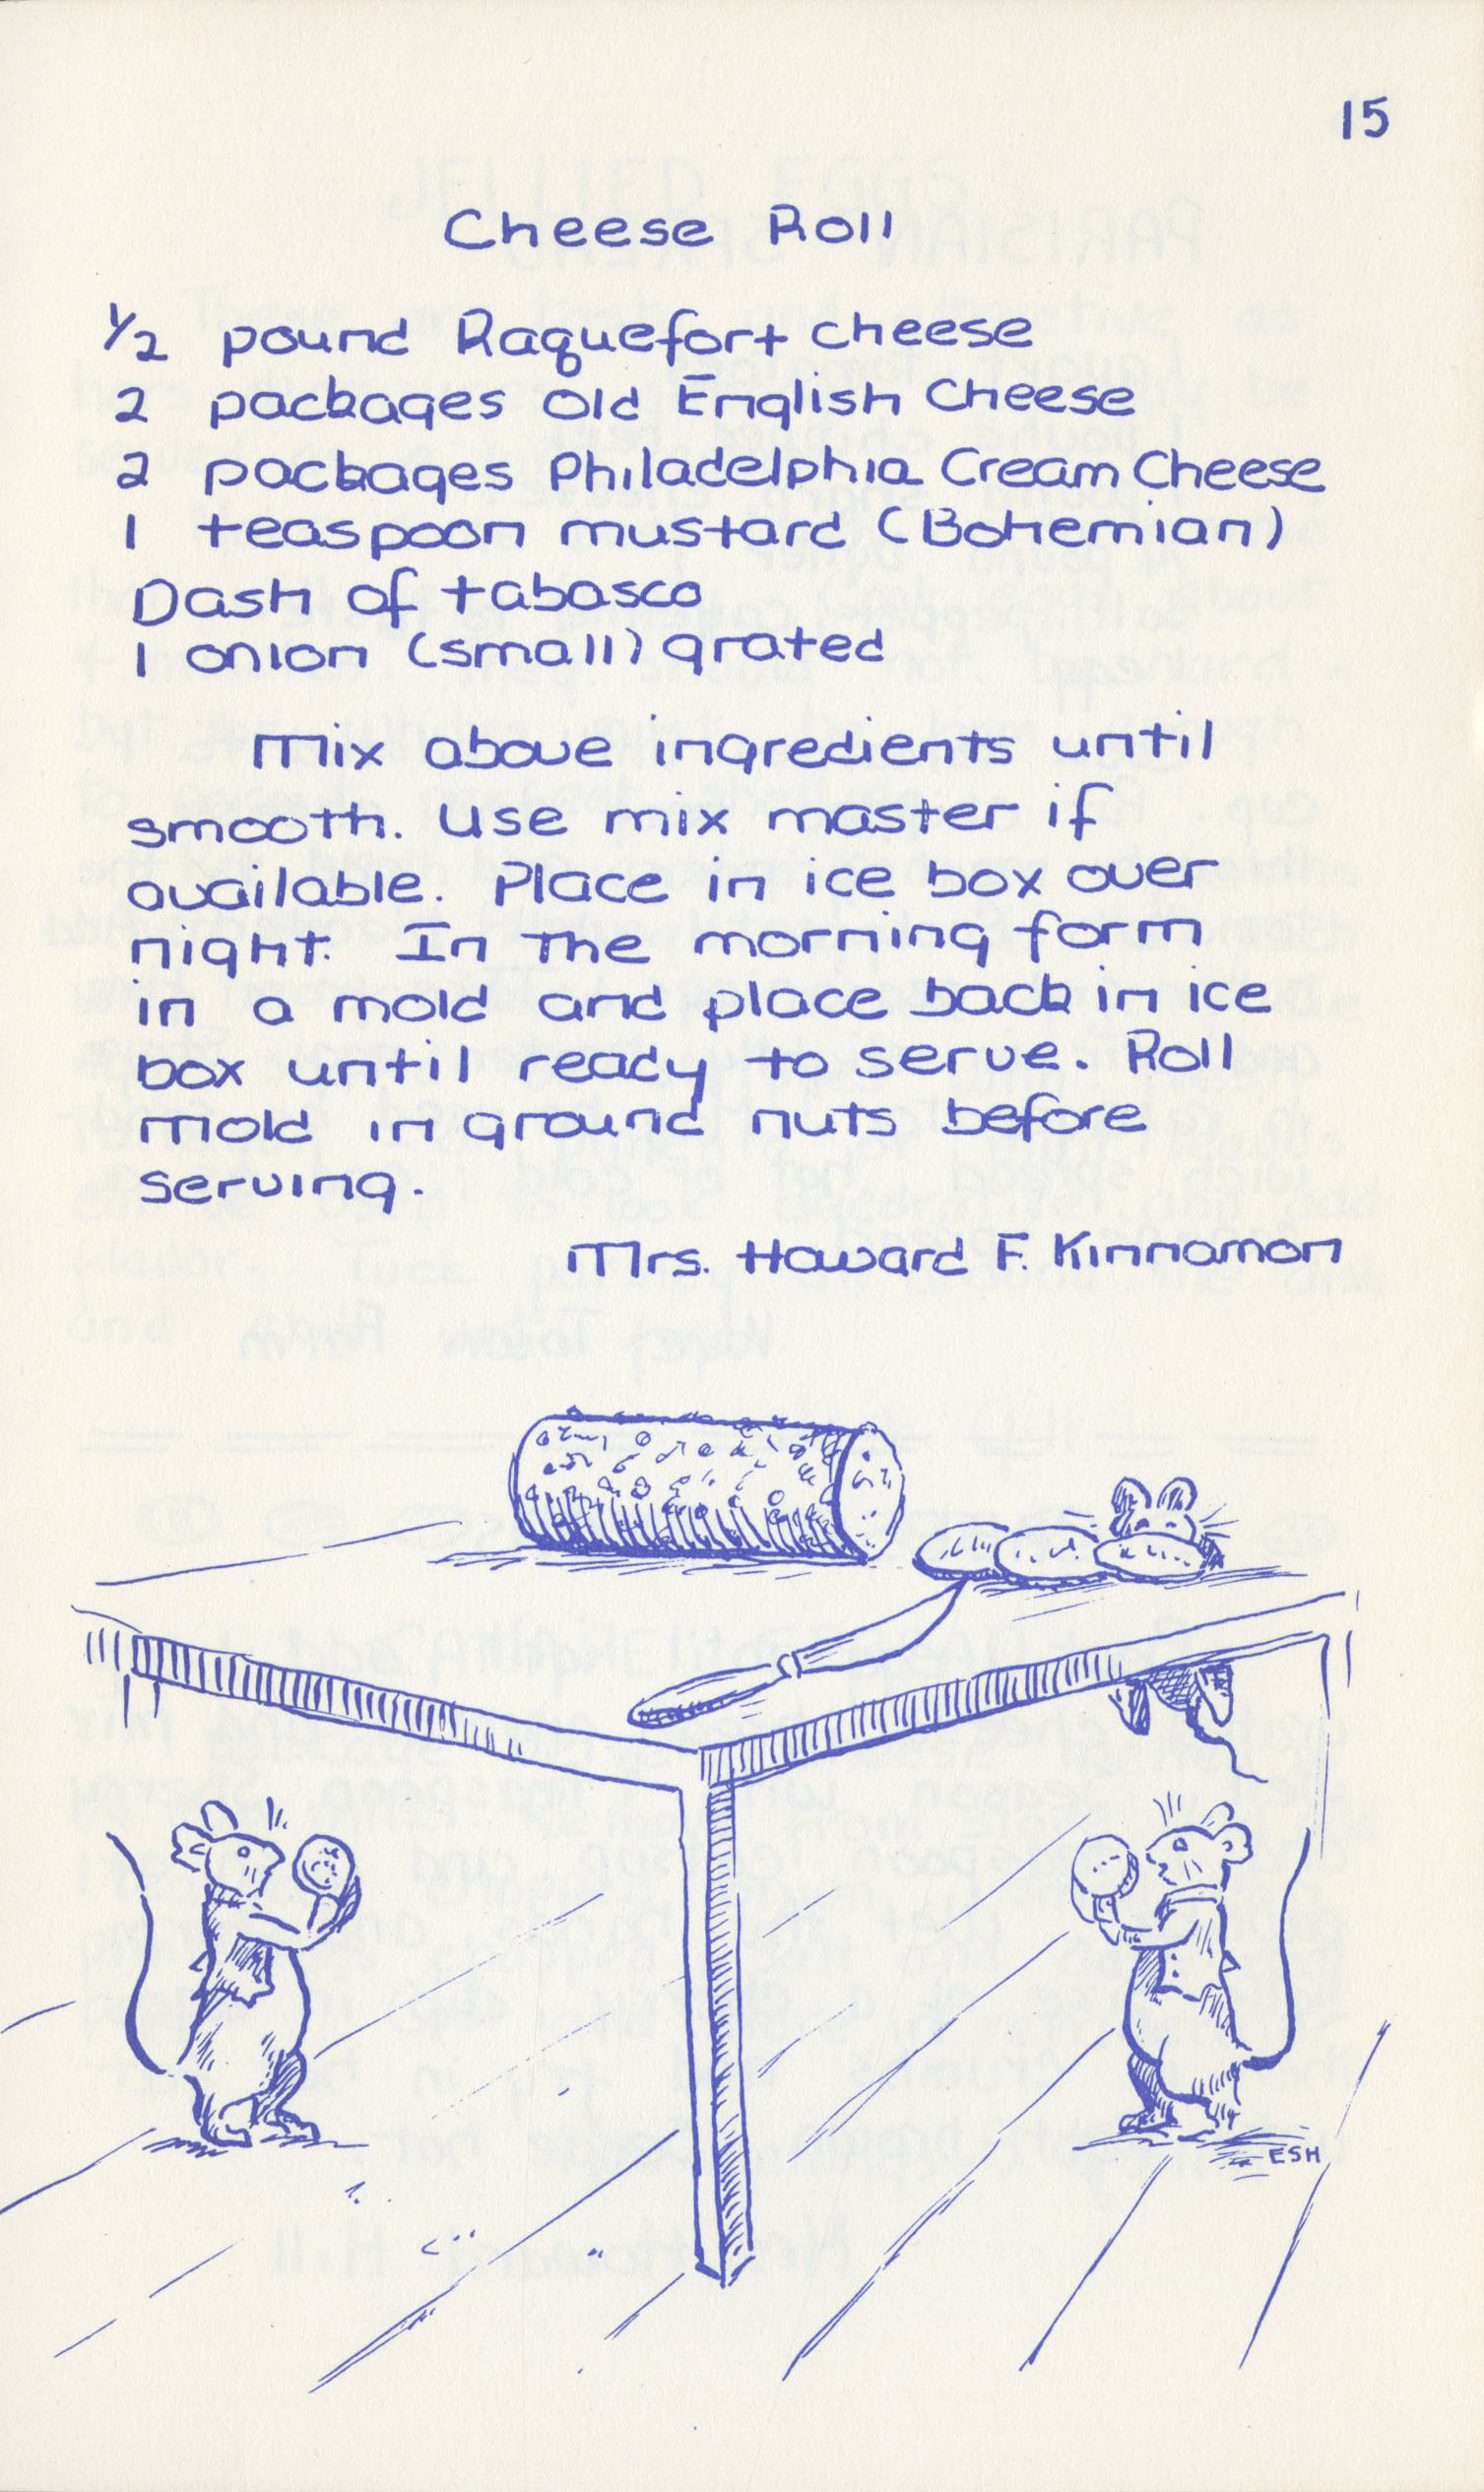 15
Cheese Roll
½ pound Raquefort cheese
2 packages Old English Cheese
2 packages Philadelphia Cream Cheese
1 teaspoon mustard (Bohemian)
Dash of tabasco
1 onion (small) grated
Mix above ingredients until
smooth. Use mix master if
available. Place in ice box over
night. In the morning form
in a mold and place back in ice
box until ready to serve. Roll
mold in ground nuts before
serving.
Mrs. Howard F. Kinnamon
ESH